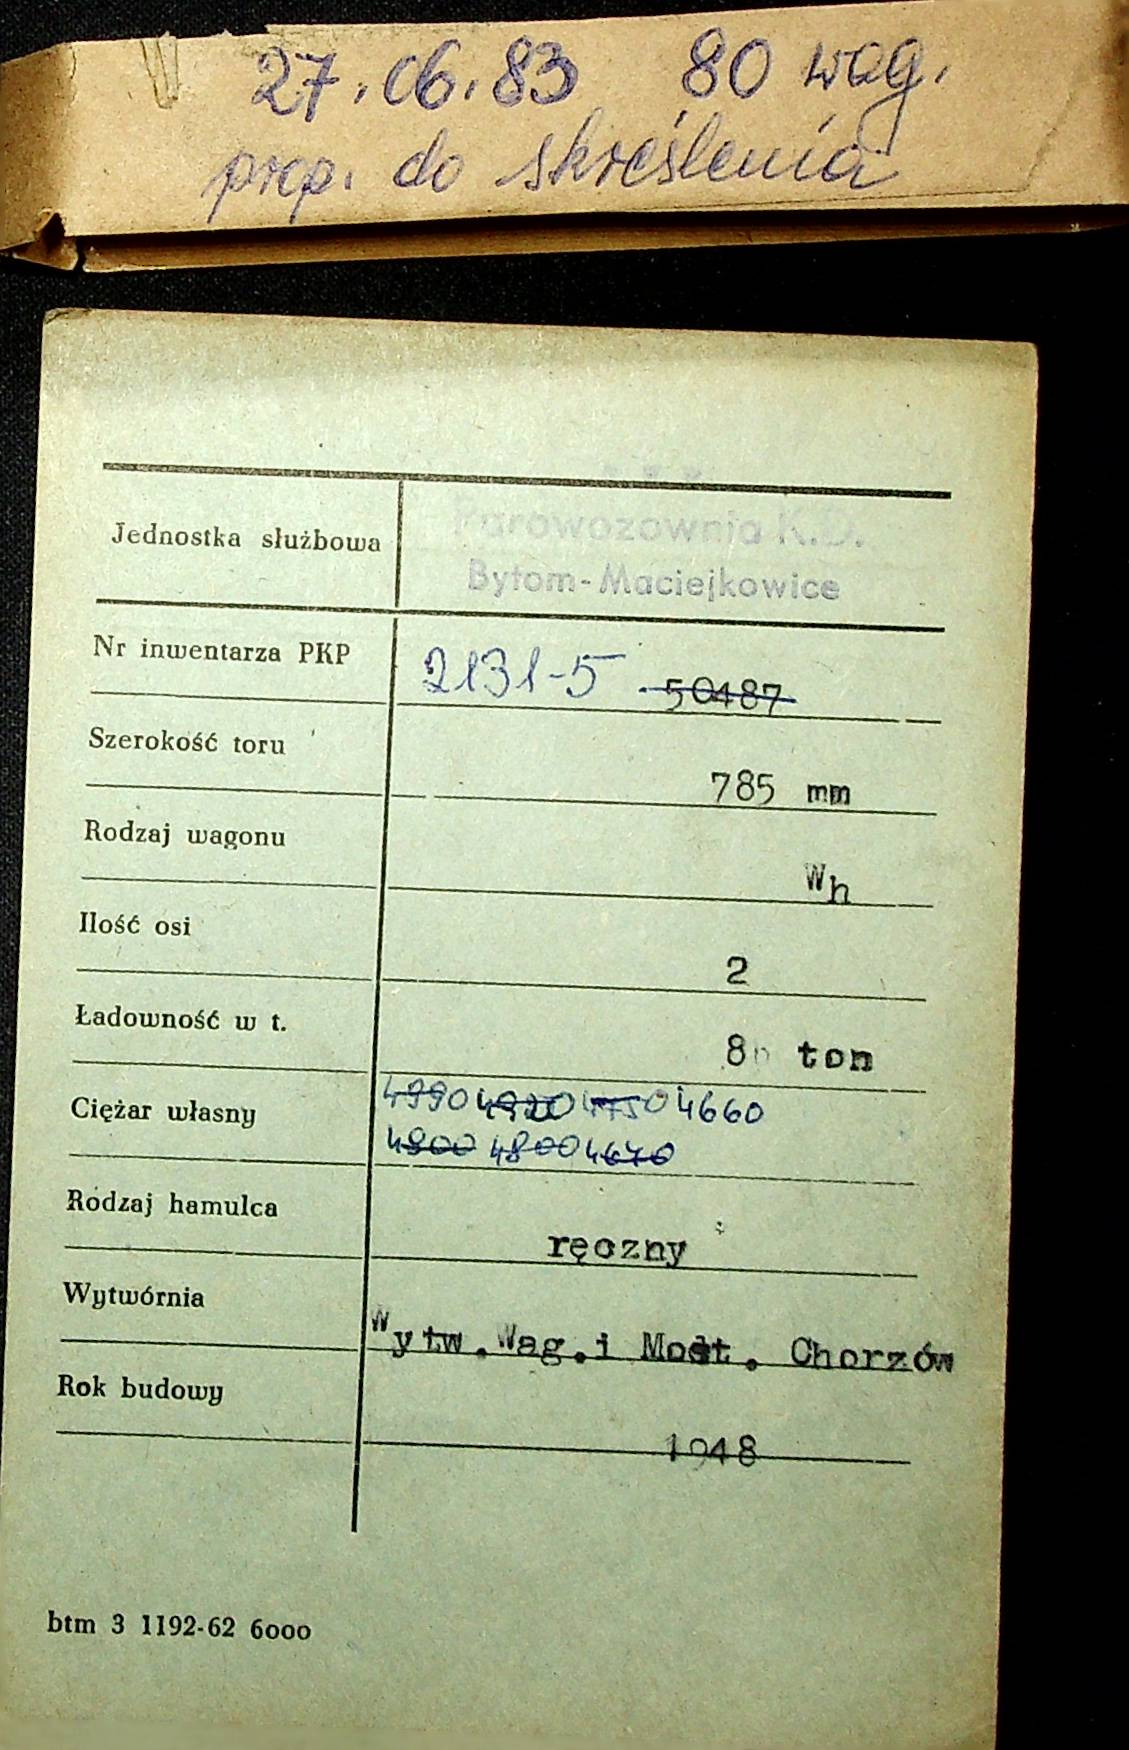 27.06.83 80 wag.
prop. do skreślenia
Jednostka służbowa
Parowozownia K.D.
Bytom-Maciejkowice
Nr inwentarza PKP 2131-5 50487
Szerokość toru 785 mm
Rodzaj wagonu Wh
Ilość osi 2
Ładowność w t. 8 ton
Ciężar własny 4990 4920 4750 4660
4800 4800 4670
Rodzaj hamulca ręczny
Wytwórnia Wytw.Wag.i Most. Chorzów
Rok budowy 1948
btm 3 1192-62 6000